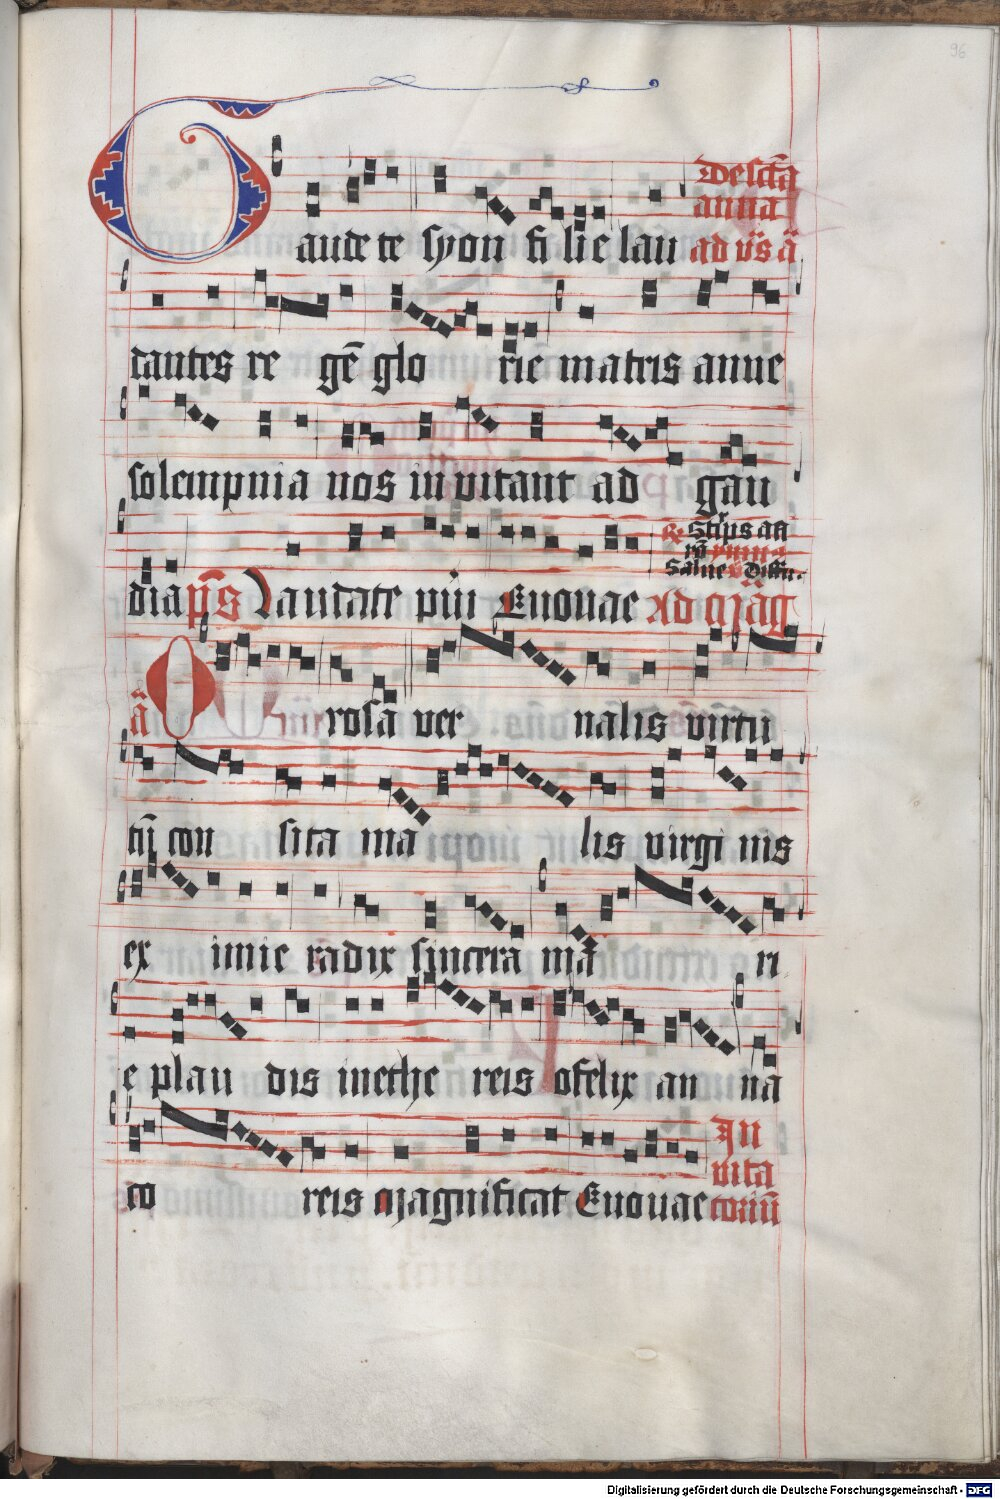 96
De sctā
anna
Gaude te syon fi lie lau ad vs̄ ā
dantes re gē glo rie matris anne
solempnia nos invitant ad gau
Stirps
Salue
dia ps̄ Laudate pūi Euouae Ad mag
ā O rosa ver nalis virtu
tū con sita ma lis virgi nis
ex imie radix sincera ma ri
e plau dis inethe reis ofelix an na
In
vita
co reis Magnificat Euouae toriū
Digitalisierung gefördert durch die Deutsche Forschungsgemeinschaft - DFG